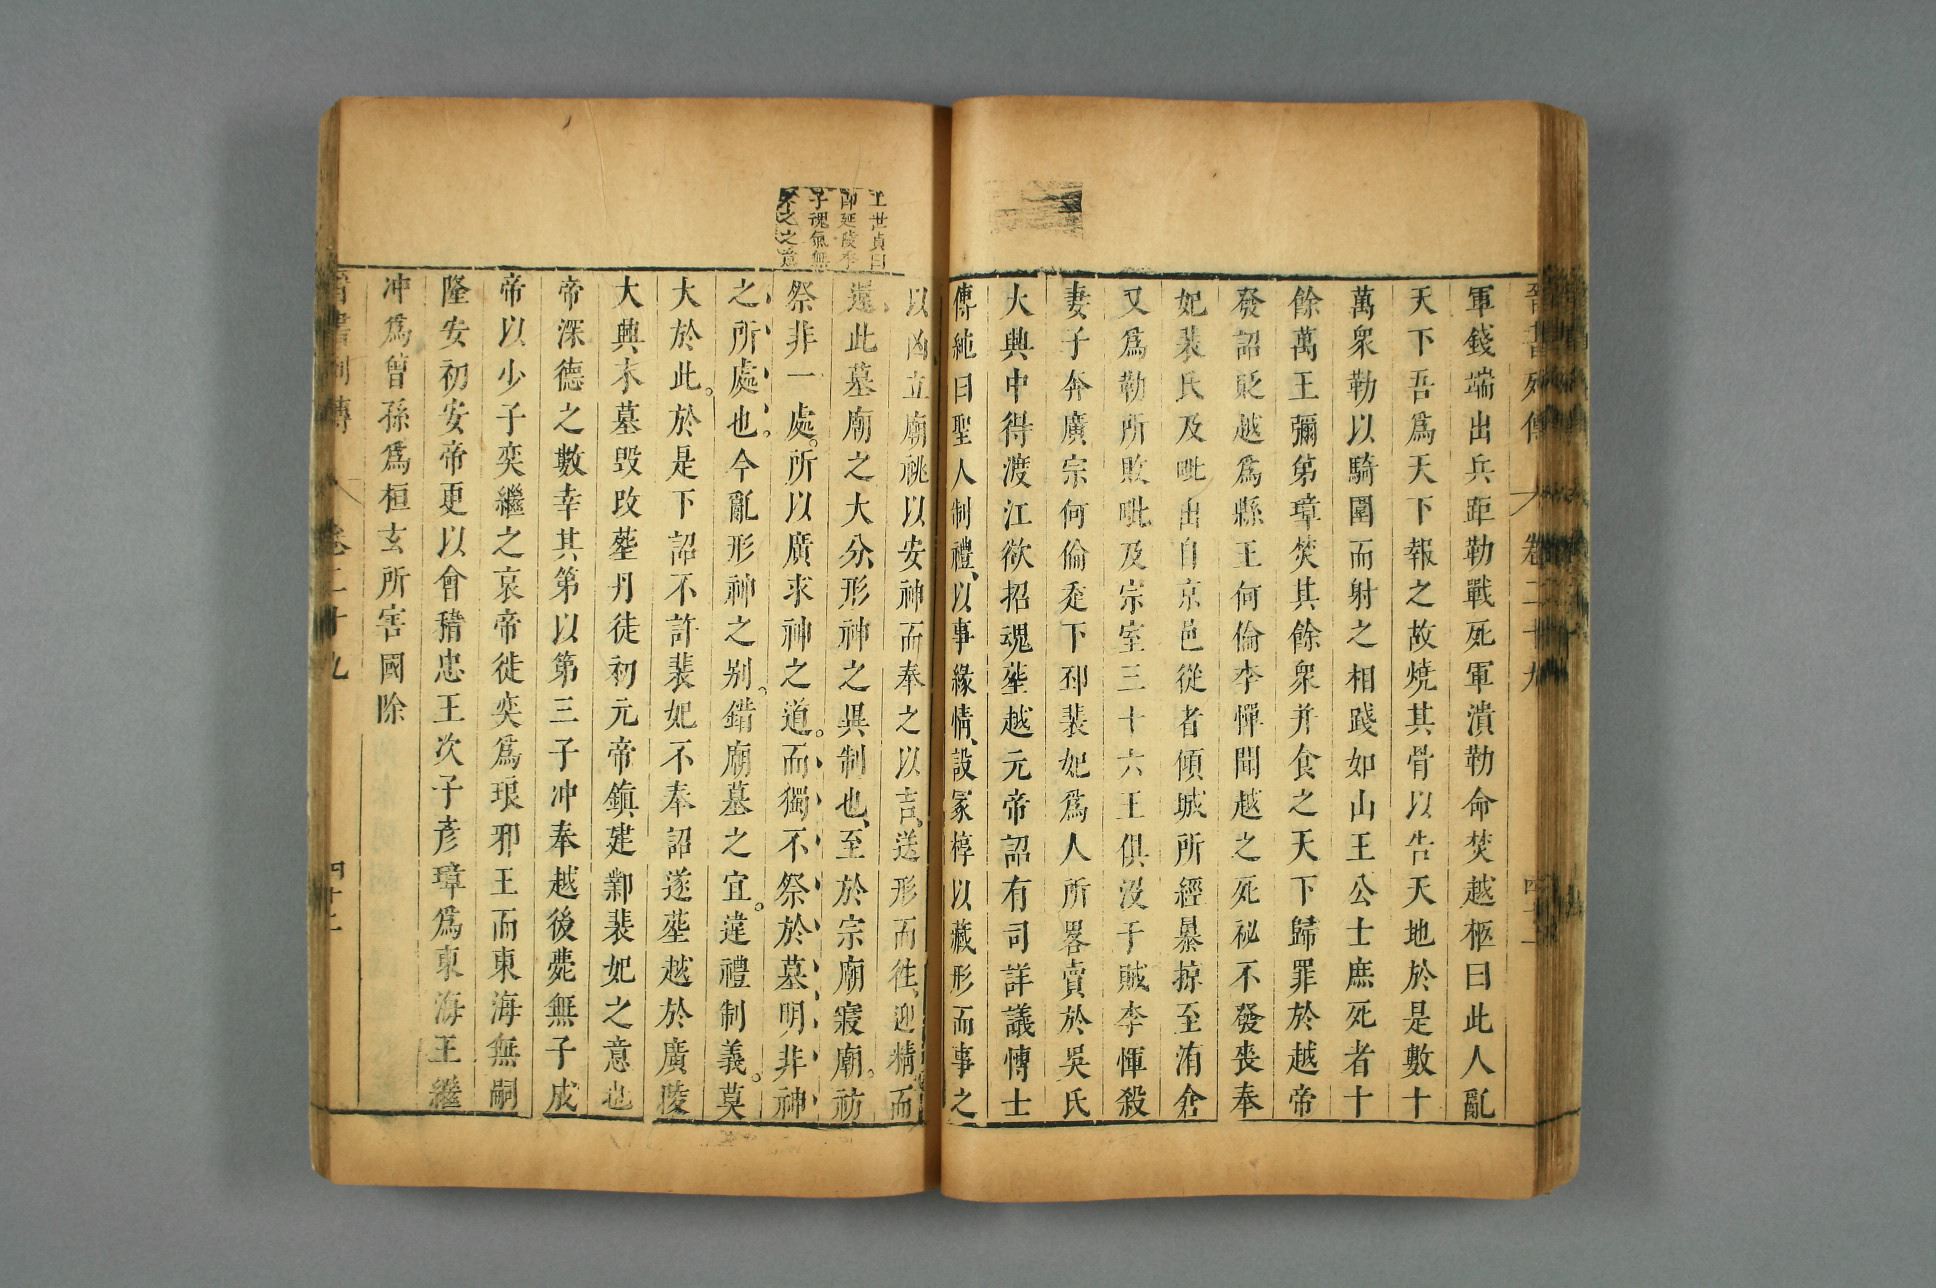 晉書列傳 卷二十九 四十一
軍錢端出兵距勒戰死軍潰勒命焚越柩曰此人亂
天下吾爲天下報之故燒其骨以告天地於是數十
萬衆勒以騎圍而射之相踐如山王公士庶死者十
餘萬王彌弟璋焚其餘衆并食之天下歸罪於越帝
發詔貶越爲縣王何倫李惲聞越之死祕不發喪奉
妃裴氏及毗出自京邑從者傾城所經暴掠至洧倉
又爲勒所敗毗及宗室三十六王俱沒于賊李惲殺
妻子奔廣宗何倫走下邳裴妃爲人所畧賣於吳氏
大興中得渡江欲招魂塟越元帝詔有司詳議博士
傅純曰聖人制禮、以事緣情、設冢椁以藏形而事之
以凶立廟祧以安神而奉之以吉、送形而往、迎精而
還此墓廟之大分、形神之異制也、至於宗廟寢廟。祊
祭非一處。所以廣求神之道。而獨不祭於墓明非神
之所處也。今亂形神之别。錯廟墓之宜。違禮制義。莫
大於此。於是下詔不許裴妃不奉詔遂塟越於廣陵
大興末墓毁改塟丹徒初元帝鎮建鄴裴妃之意也
帝深德之數幸其第以第三子冲奉越後薨無子成
帝以少子奕繼之哀帝徙奕爲琅邪王而東海無嗣
隆安初安帝更以會稽忠王次子彥璋爲東海王繼
冲爲曾孫爲桓玄所害國除
王世貞曰
即延陵季
子魂氣無
不之之意
晉書列傳 卷二十九 四十二